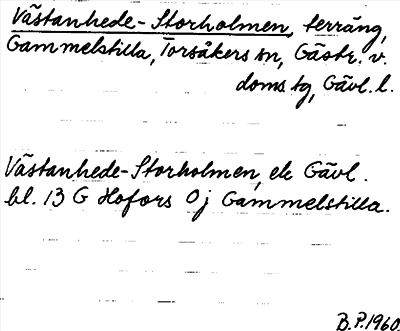 Västanhede-Storholmen, terräng,
Gammelstilla, Torsåkers sn, Gästr. v.
doms.tg, Gävl. l.
Västanhede-Storholmen, ek Gävl.
bl. 13 G Hofors 0j Gammelstilla.
B.P. 1960.